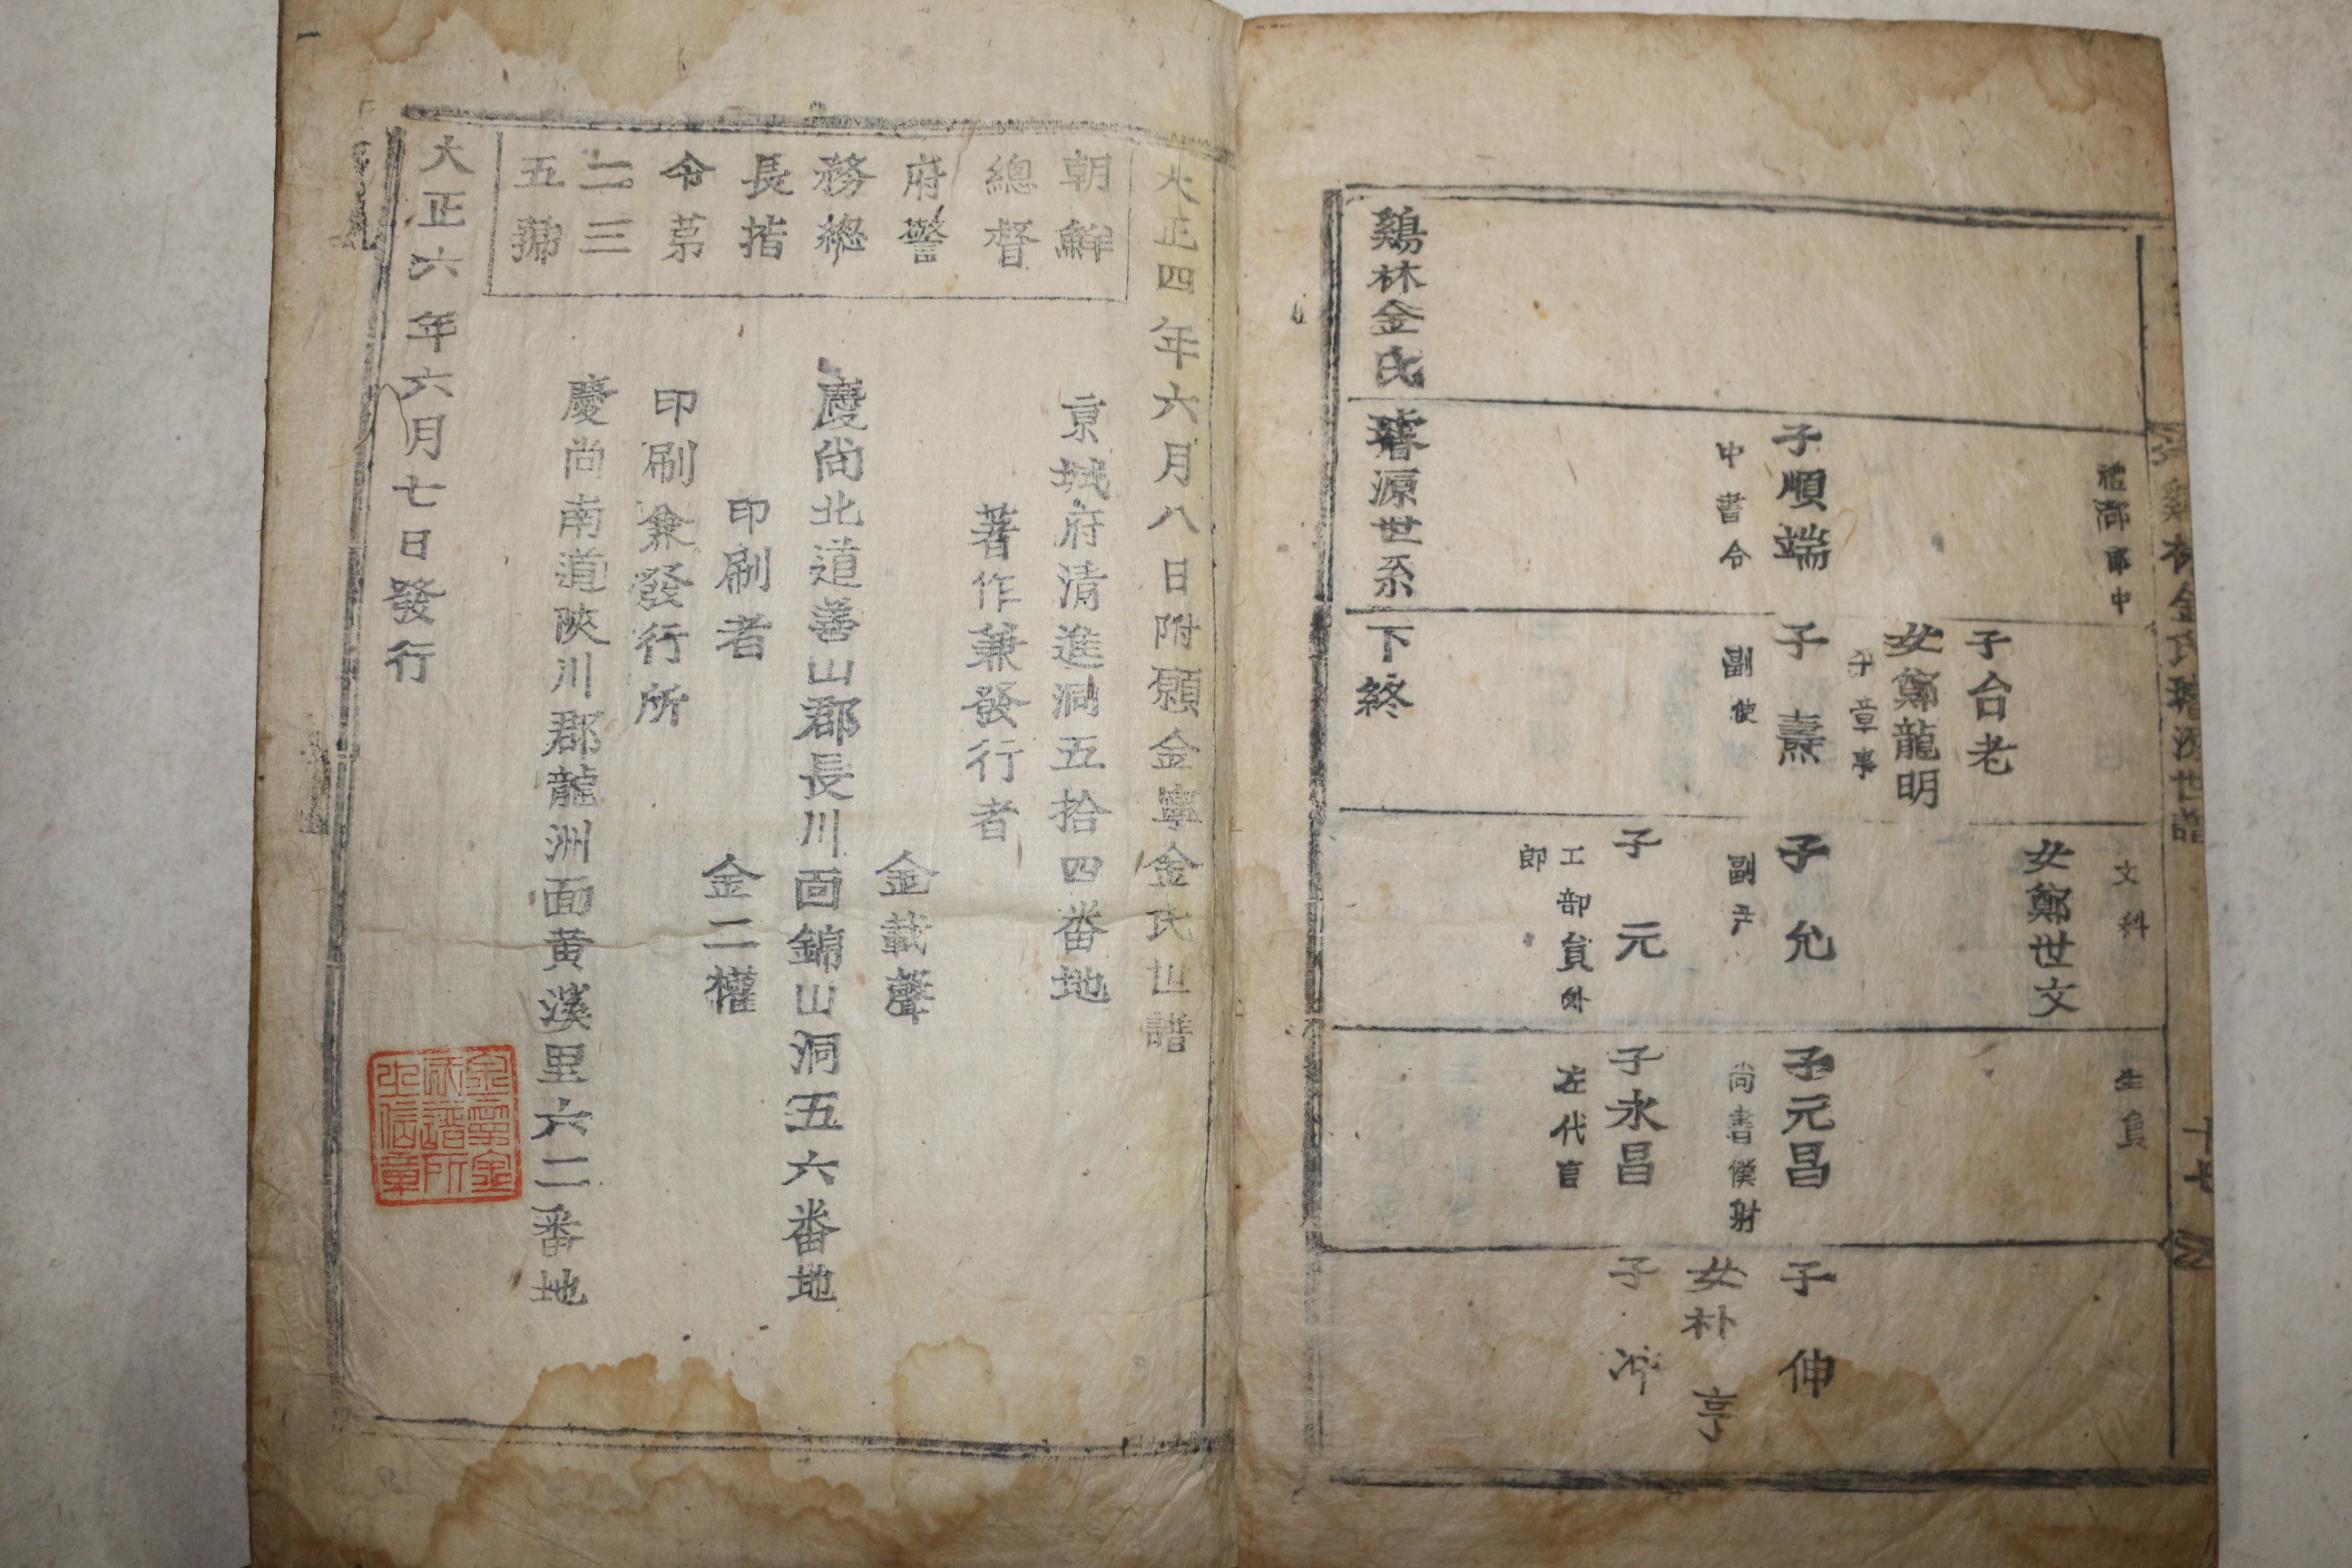 鷄林金氏璿源世譜
十七
禮部郎中
文科
生員
女鄭世文
子台老
女鄭龍明
平章事
子順端
中書令
子熹
副使
子允
副尹
子元昌
尚書僕射
子伸
女朴亨
子元
工部員外
郎
子永昌
左代言
子冲
鷄林金氏璿源世系下終
大正四年六月八日附願金寧金氏世譜
朝鮮
總督
府警
務總
長指
令第
二三
五號
京城府清進洞五拾四番地
著作兼發行者
金載聲
慶尚北道善山郡長川面錦山洞五六番地
印刷者
金二權
印刷兼發行所
慶尚南道陜川郡龍洲面黃溪里六二番地
大正六年六月七日發行
金寧金
氏譜所
之信章